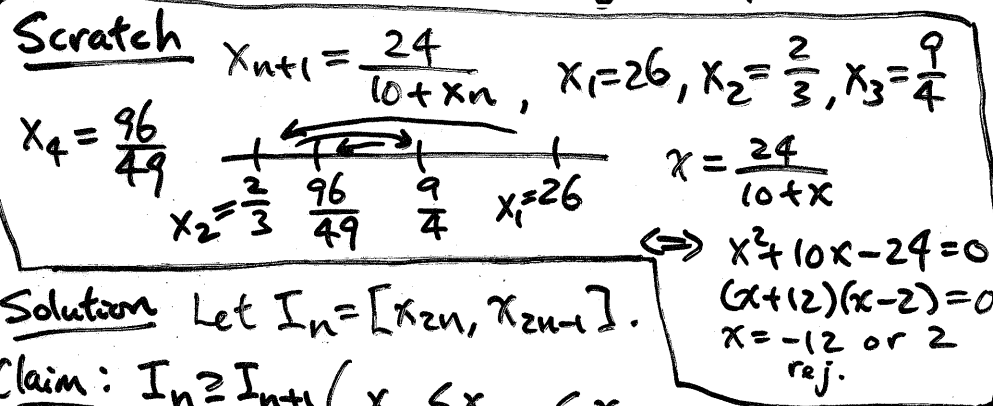 Scratch x_{n+1} = \frac{24}{10+x_n}, x_1=26, x_2=\frac{2}{3}, x_3=\frac{9}{4}
x_4 = \frac{96}{49}
x_2=\frac{2}{3} \frac{96}{49} \frac{9}{4} x_1=26
x = \frac{24}{10+x}
⇔ x^2+10x-24=0
(x+12)(x-2)=0
x=-12 or 2
rej.
Solution Let I_n=[x_{2n}, x_{2n-1}].
Claim: I_n ⊇ I_{n+1} (